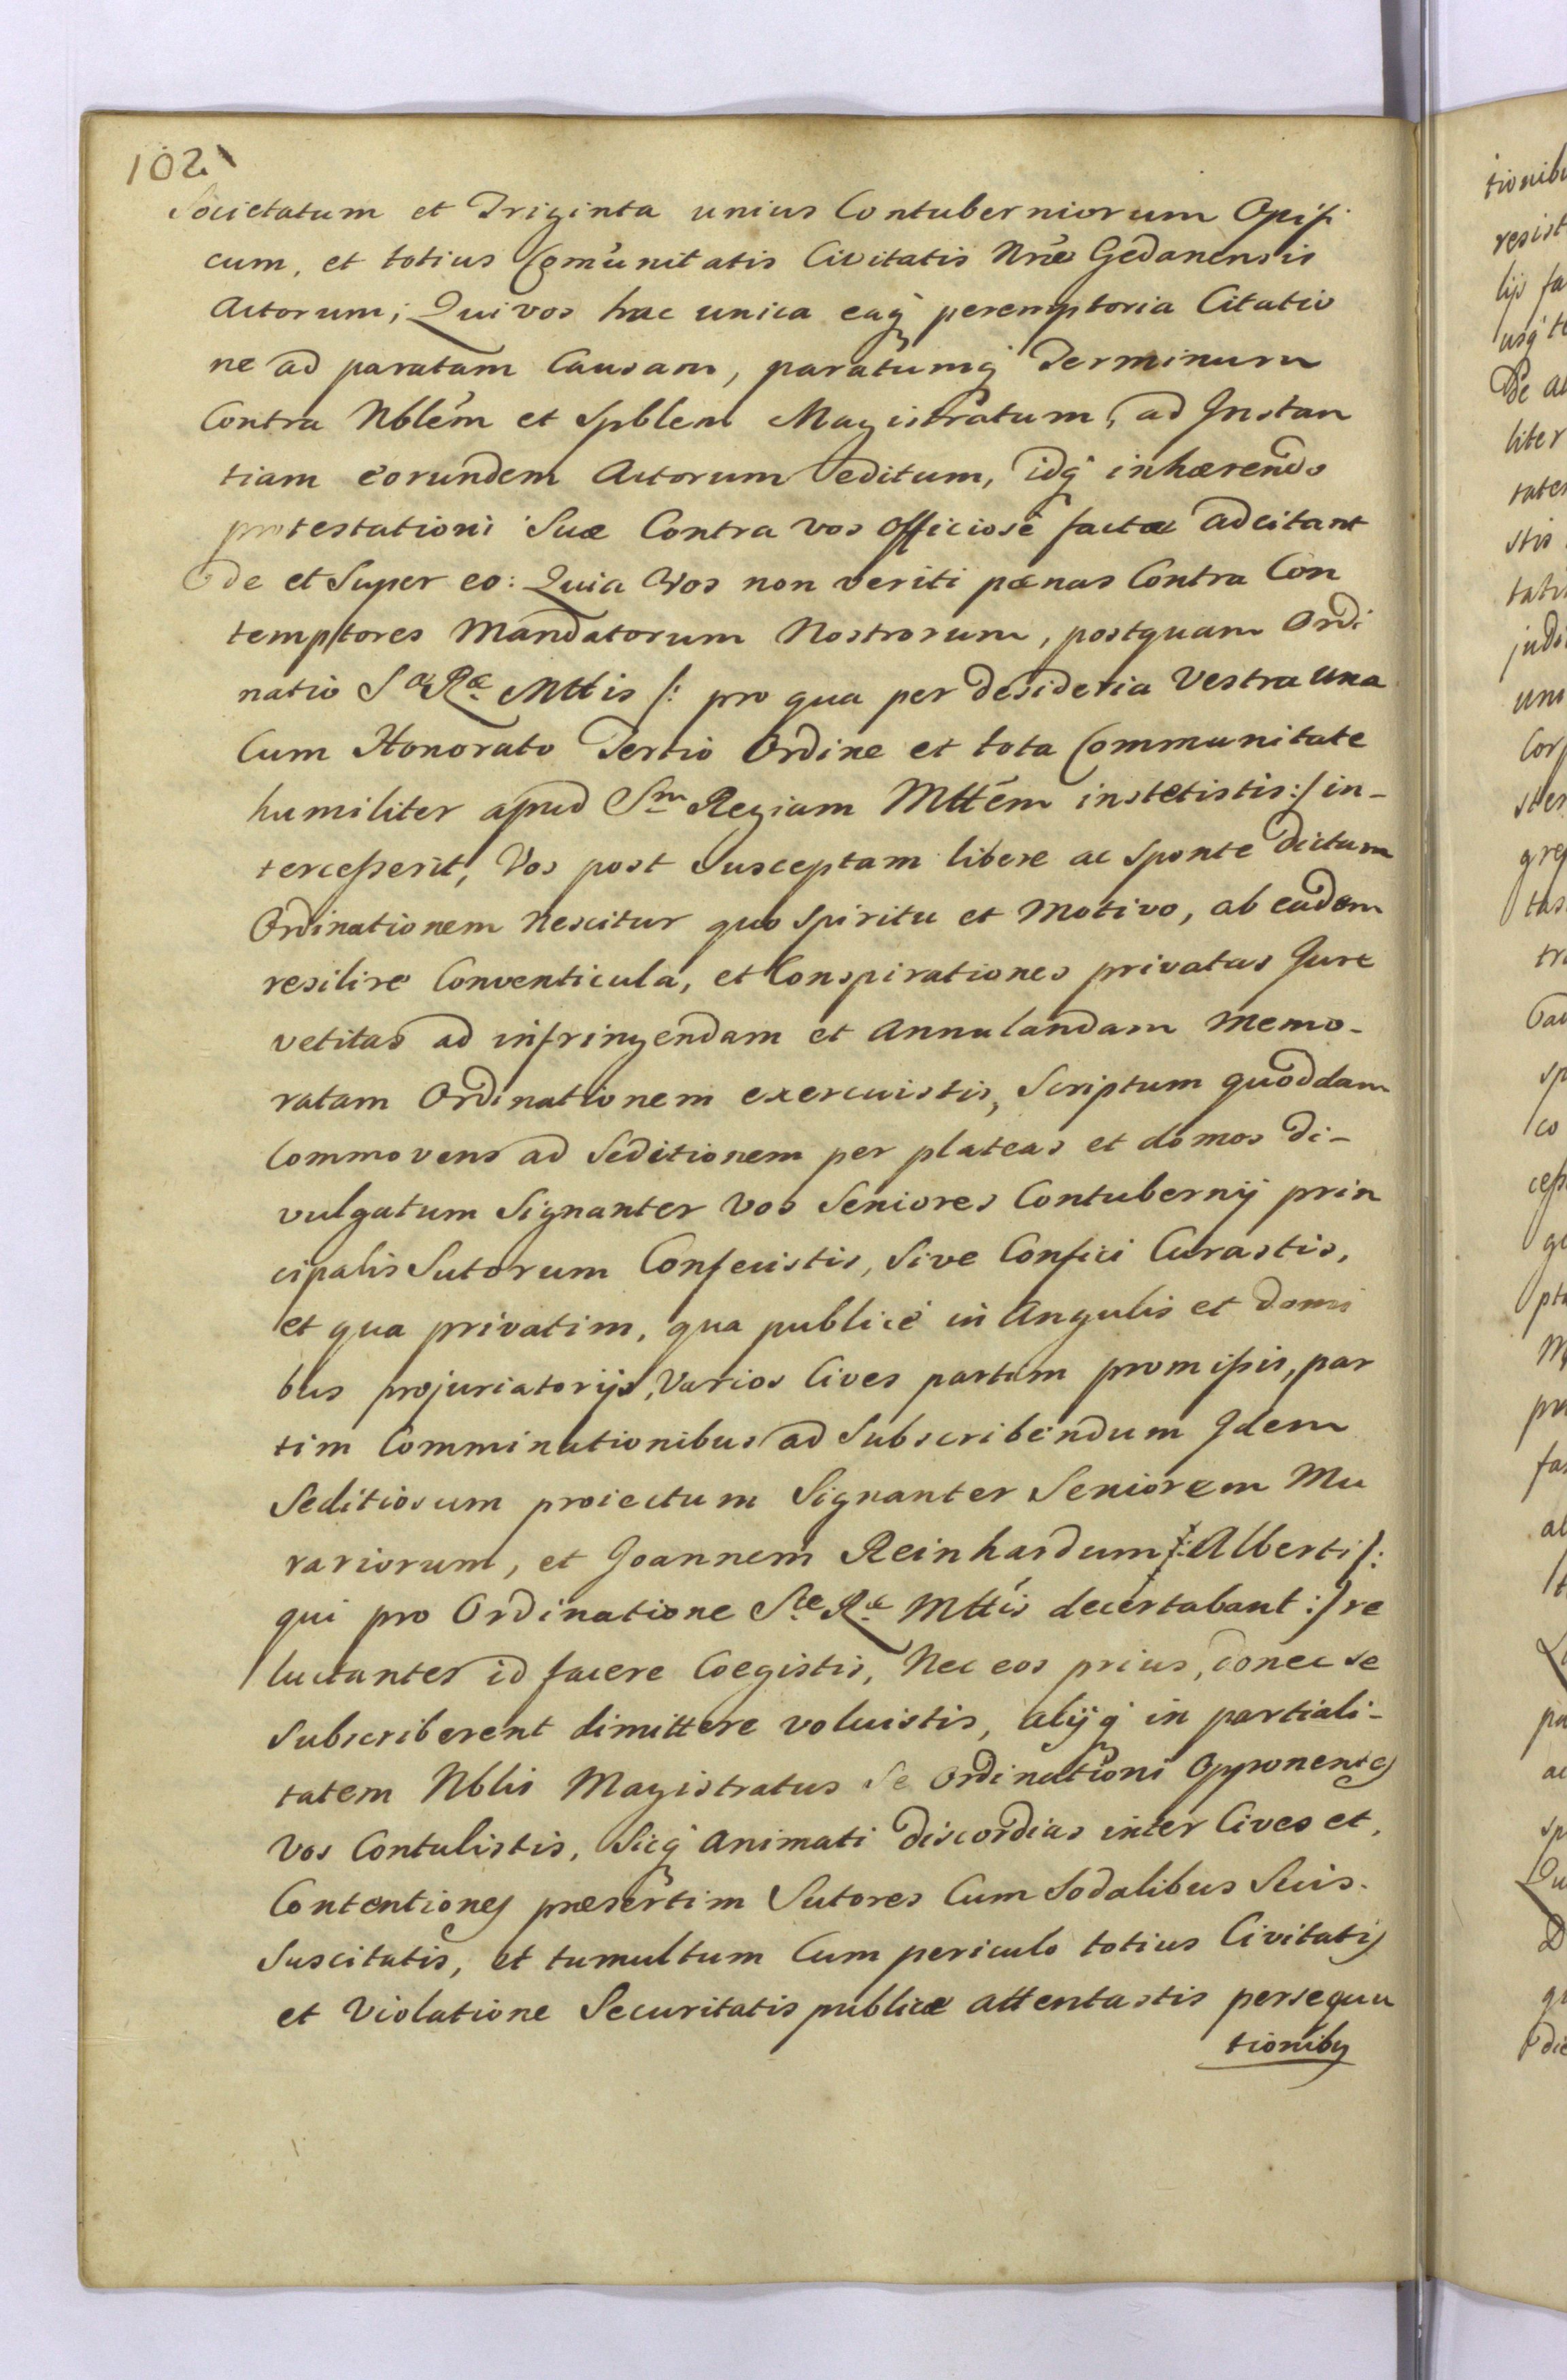 102
Societatum et Triginta unius Contuberniorum Opifi
cum, et totius Comunitatis Civitatis Nrae Gedanensis
Actorum; Qui vos hac unica eaq peremptoria Citatio
ne ad paratam Causam, paratumq Terminum
Contra Nblem et Spblem Magistratum, ad Instan
tiam eorundem Actorum editum, idq inhaerendo
protestationi Suae Contra vos officiose factae adcitant
de et Super eo: Quia Vos non veriti paenas Contra Con
temptores Mandatorum Nostrorum, postquam Ordi
natio Sae Rae Mttis /: pro qua per desideria Vestra una
Cum Honorato Tertio Ordine et tota Communitate
humiliter apud Sm Regiam Mttém instetistis :/ in-
terceßerit, Vos post Susceptam libere ac sponte dictam
Ordinationem Nescitur quo Spiritu et Motivo, ab eadem
resilire Conventicula, et Conspirationes privatas Jure
vetitas ad infringendam et Annulandam Memo-
ratam Ordinationem exercuistis, Scriptum quoddam
Commovens ad Seditionem per plateas et domos di-
vulgatum Signanter Vos Seniores Contubernij prin
cipalis Sutorum Confecistis, Sive Confici Curastis,
et qua privatim, qua publicé in Angulis et domi
bus projuriatorijs, Varios Cives partim promißis, par
tim Comminationibus ad Subscribendum Idem
Seditiosum proiectum Signanter Seniorem Mu
rariorum, et Joannem Reinhardum /: Alberti /:
qui pro Ordinatione Sae Rae Mttis decertabant :/ re
luctanter id facere Coegistis, Nec eos prius, donec se
Subscriberent dimittere voluistis, alijq in partiali-
tatem Nblis Magistratus Se Ordinationi Opponentes
Vos Contulistis, Sicq Animati discordias inter Cives et
Contentiones praesertim Sutores Cum Sodalibus Suis
Suscitatis, et tumultum Cum periculo totius Civitatis
et Violatione Securitatis publicae attentastis persequu
tionibus
tionibu
resist
lijs fa
usq te
De
liter
stis